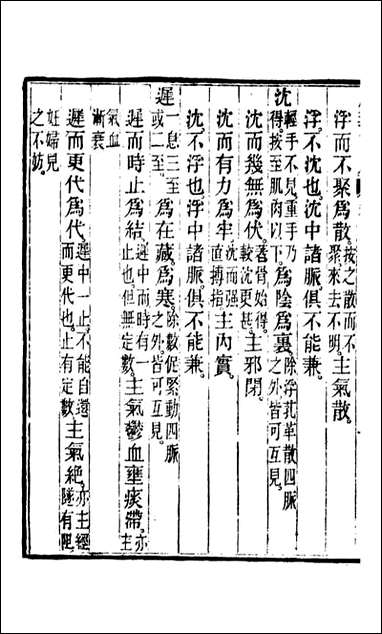 浮而不聚爲散。按之散而不聚來去不明。主氣散。
浮不沈也沈中諸脈俱不能兼。
沈輕手不見重手乃得。按至肌肉以下。爲陰爲裏。除浮芤革散四脈之外皆可互見。
沈而幾無爲伏。著骨始得。較沈更甚。主邪閉。
沈而有力爲牢。沈而强直搏指。主內實。
沈不浮也浮中諸脈俱不能兼。
遲一息三至或二至。爲在藏。爲寒。除數促緊動四脈之外皆可互見。
遲而時止爲結。遲中而時有一止也。但無定數。主氣鬱血壅痰滯。亦主氣血漸衰
遲而更代爲代。遲中一止。不能自還而更代也。止有定數。主氣絕。亦主經隧有阻。妊婦見之不妨。